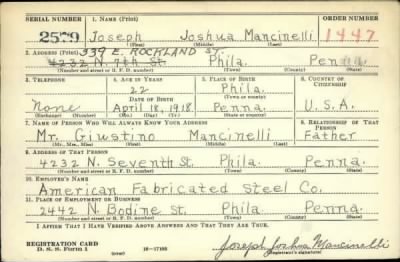 SERIAL NUMBER 1. NAME (Print) ORDER NUMBER
2579 Joseph Joshua Mancinelli 1447
(First) (Middle) (Last)
2. ADDRESS (Print) 339 E. ROCKLAND ST.
4232 N. 7th St. Phila. Penna.
(Number and street or R. F. D. number) (Town) (County) (State)
3. TELEPHONE 4. AGE IN YEARS 5. PLACE OF BIRTH 6. COUNTRY OF CITIZENSHIP
22 Phila.
DATE OF BIRTH (Town or county)
None April 18, 1918. Penna. U.S.A.
(Exchange) (Number) (Mo.) (Day) (Yr.) (State or country)
7. NAME OF PERSON WHO WILL ALWAYS KNOW YOUR ADDRESS 8. RELATIONSHIP OF THAT PERSON
Mr. Giustino Mancinelli Father
(Mr., Mrs., Miss) (First) (Middle) (Last)
9. ADDRESS OF THAT PERSON
4232 N. Seventh St. Phila. Penna.
(Number and street or R. F. D. number) (Town) (County) (State)
10. EMPLOYER'S NAME
American Fabricated Steel Co.
11. PLACE OF EMPLOYMENT OR BUSINESS
2442 N. Bodine St. Phila Penna.
(Number and street or R. F. D. number) (Town) (County) (State)
I AFFIRM THAT I HAVE VERIFIED ABOVE ANSWERS AND THAT THEY ARE TRUE.
REGISTRATION CARD
D. S. S. Form 1 (over) 16—17105 Joseph Joshua Mancinelli
(Registrant's signature)